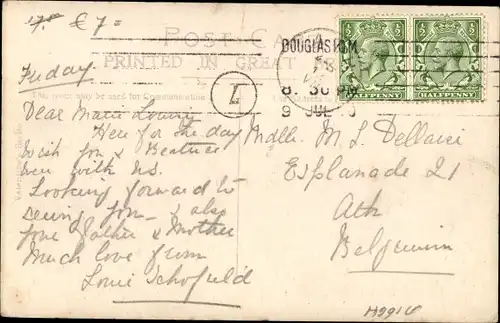 17.8 £7=
POST CA
PRINTED IN GREAT
may be used for Communication
DOUGLAS I.O.M.
8. 30 PM
9 JUL
HALFPENNY HALFPENNY
T
Friday
Dear Marie Louise
Here for the day
Wish you & Beatrice
were with us.
Looking forward to
seeing you – & also
your Father & Mother
Much love from
Louie Schofield
Mdlle. M. L. Dellaici
Esplanade 21
Ath
Belgium